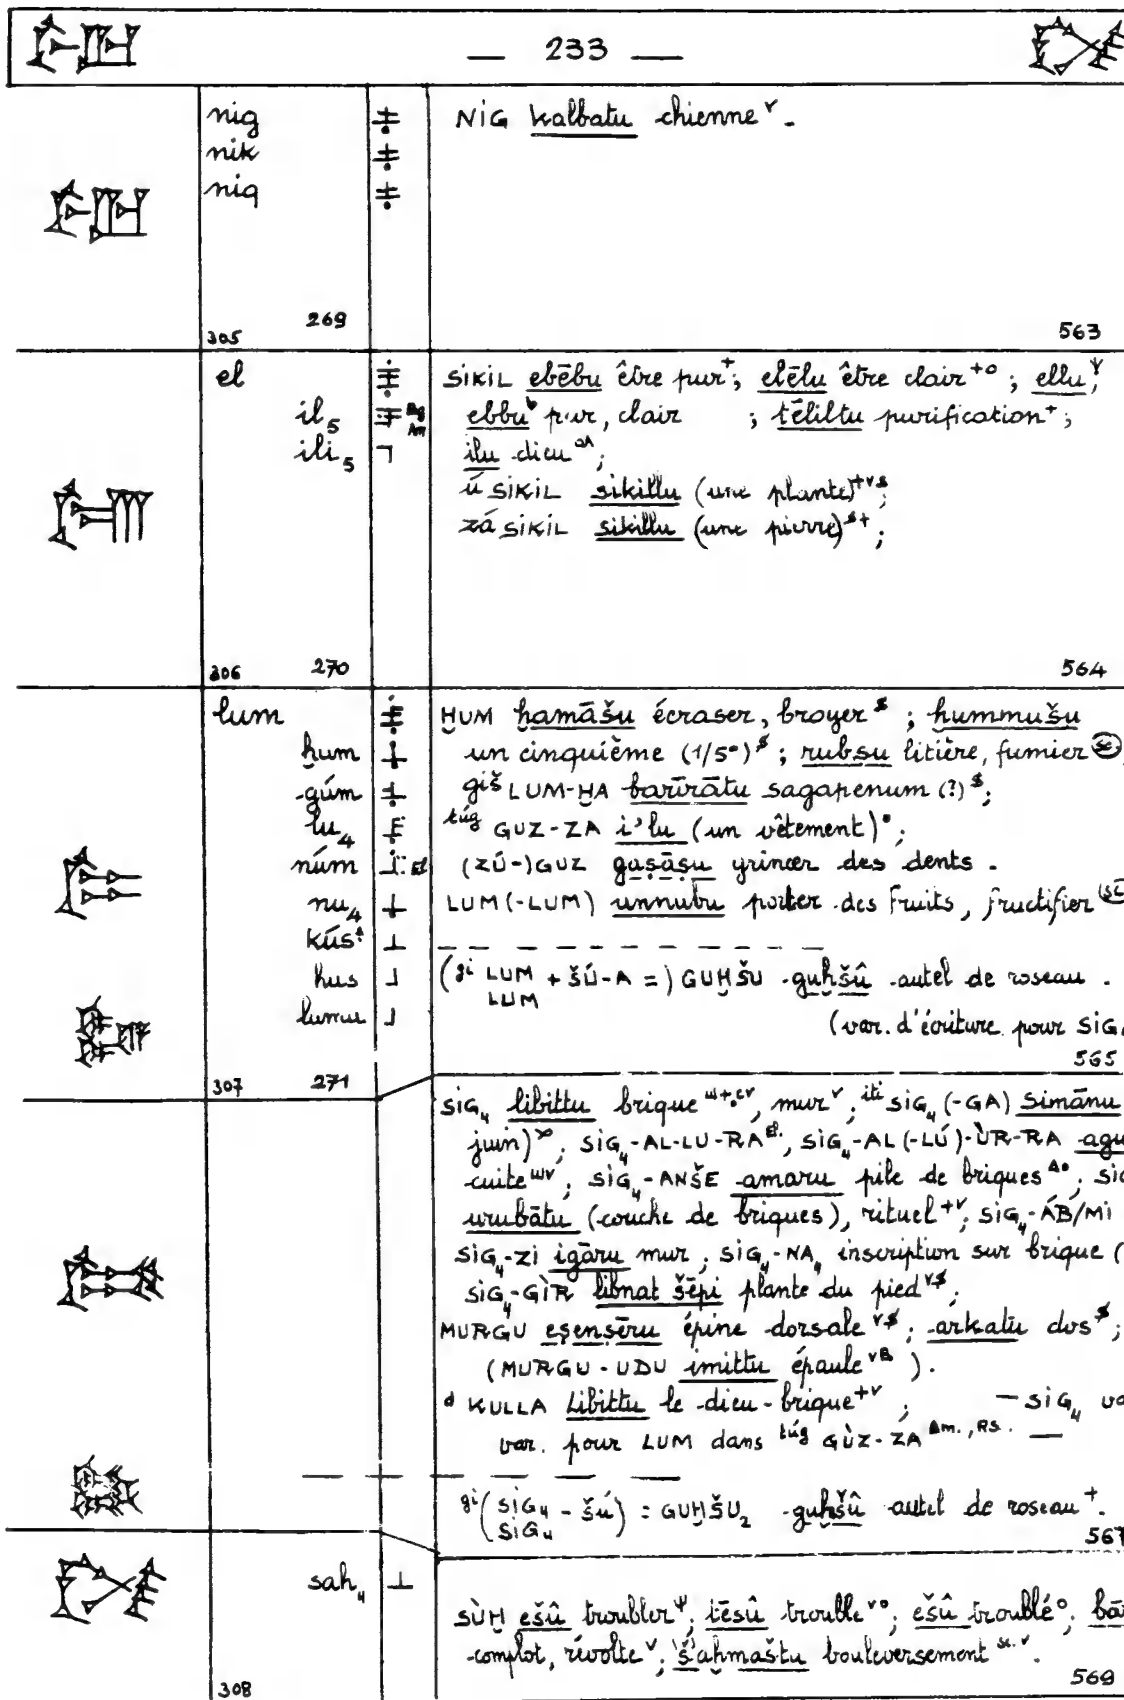 — 233 —
nig NIG kalbatu chienne ᵛ.
nik
niq
305 269 563
el SIKIL ebēbu être pur⁺; elēlu être clair⁺°; ellu,
il₅ ebbu pur, clair ; tēliltu purification⁺;
ili₅ ilu dieu ᵒᴬ;
ú SIKIL sikillu (une plante)⁺ᵛˢ;
zá SIKIL sikillu (une pierre)ˢ⁺;
306 270 564
lum ḪUM ḫamāšu écraser, broyer $; ḫummušu
ḫum un cinquième (1/5°) $; rubṣu litière, fumier
gúm giš LUM-ḪA barīrātu sagapenum (?) $;
lu₄ túg GUZ-ZA i'lu (un vêtement)°;
núm (ZÚ-)GUZ gaṣāṣu grincer des dents.
nu₄ LUM(-LUM) unnubu porter des fruits, fructifier
kús
hus (gi LUM + ŠÚ-A =) GUḪŠU guḫšû autel de roseau.
LUM
lumu (var. d'écriture pour SIG₄
565
307 271
SIG₄ libittu brique, mur ᵛ; iti SIG₄ (-GA) simānu
juin); SIG₄-AL-LU-RA, SIG₄-AL(-LÚ)-ÙR-RA agu
cuite; SIG₄-ANŠE amaru pile de briques; SIG
urubātu (couche de briques), rituel⁺ᵛ; SIG₄-ÁB/MI
SIG₄-ZI igāru mur; SIG₄-NA₄ inscription sur brique (
SIG₄-GÌR libnat šēpi plante du pied ᵛ$;
MURGU eṣenṣēru épine dorsale ᵛ$; arkatu dos $;
(MURGU-UDU imittu épaule ᵛᴮ).
d KULLA Libittu le dieu-brique⁺ᵛ; — SIG₄ va
var. pour LUM dans túg GÙZ-ZA Am., RS. —
gi (SIG₄ - ŠÚ) = GUḪŠU₂ guḫšû autel de roseau⁺.
SIG₄
567
sah₄ SÙḪ ešû troubler; tēšû trouble ᵛ°; ešû troublé°; bā
complot, révolte ᵛ; šaḫmaštu bouleversement
308 569